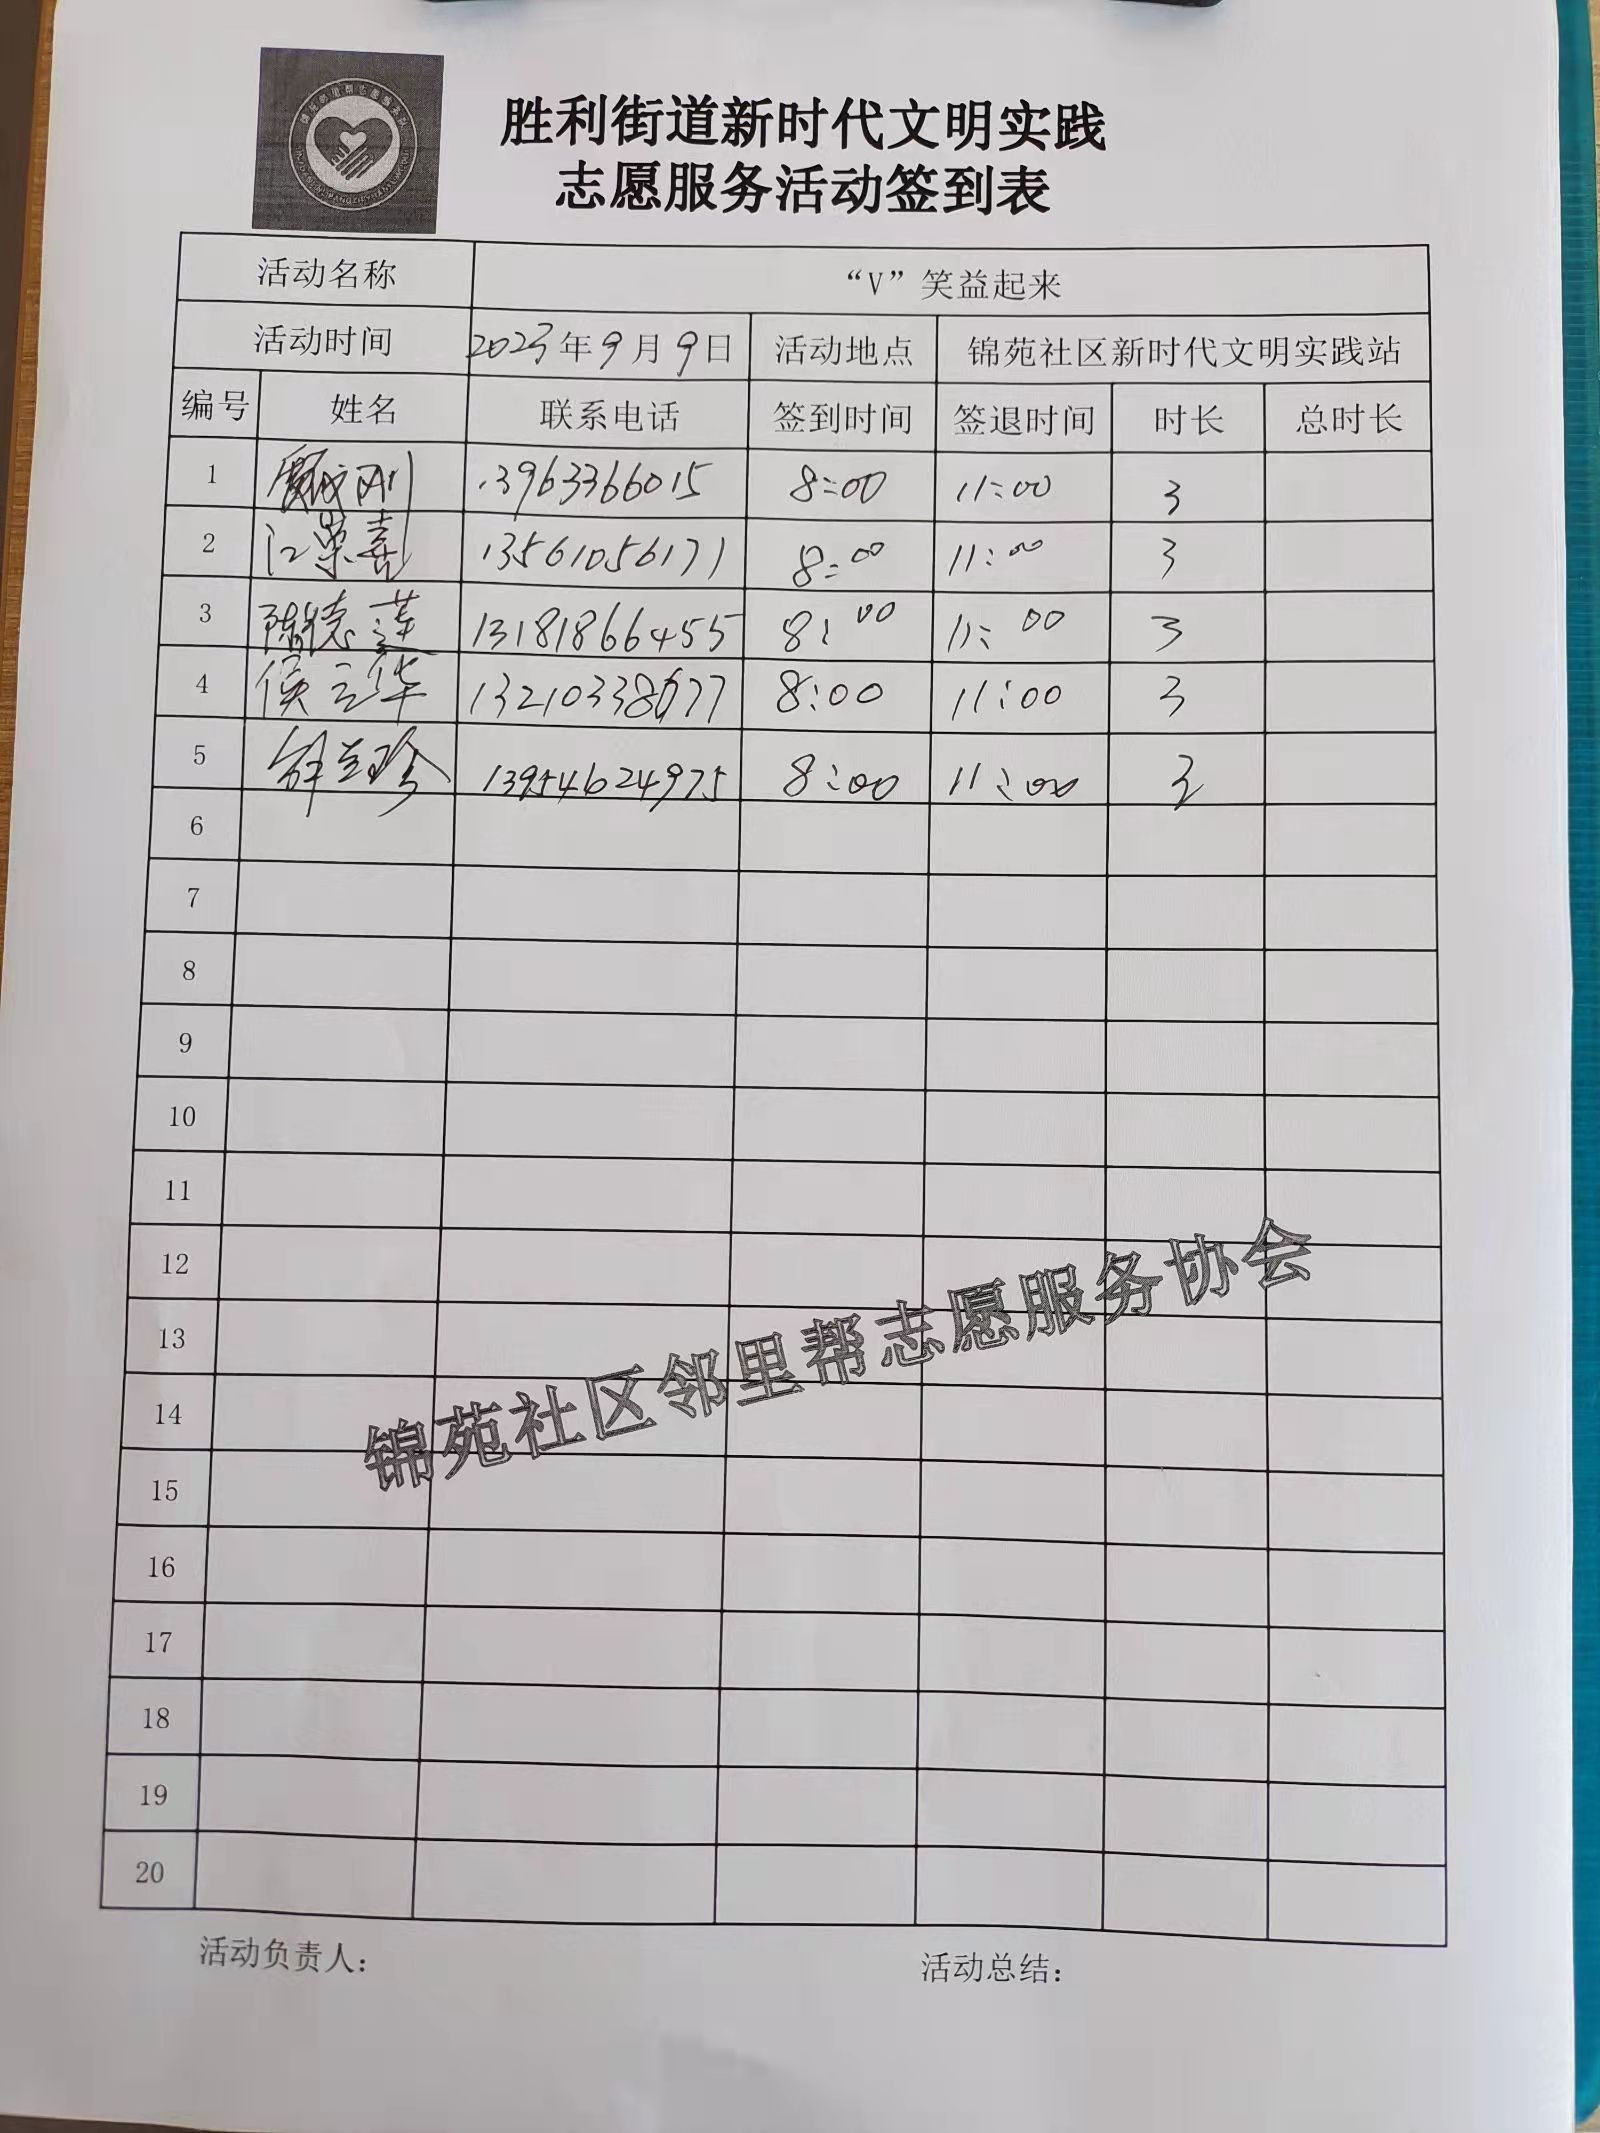 胜利街道新时代文明实践
志愿服务活动签到表
活动名称 “V”笑益起来
活动时间 2023年9月9日 活动地点 锦苑社区新时代文明实践站
编号 姓名 联系电话 签到时间 签退时间 时长 总时长
1 13963366015 8:00 11:00 3
2 江荣喜 13561056171 8:00 11:00 3
3 陈德莲 13181866455 8:00 11:00 3
4 侯立华 8:00 11:00 3
5 13954624975 8:00 11:00 3
6
7
8
9
10
11
12
13
14
15
16
17
18
19
20
锦苑社区邻里帮志愿服务协会
活动负责人：
活动总结：